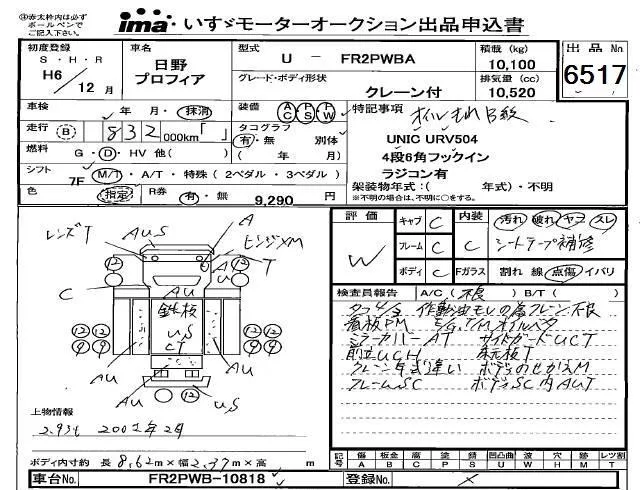 ④赤太枠内は必ず
ボールペンで
ご記入下さい。
ima いすゞモーターオークション出品申込書
初度登録
S・H・R
H6/12月
車名
日野
プロフィア
型式
U － FR2PWBA
グレード・ボディ形状
クレーン付
積載 (kg)
10,100
排気量 (cc)
10,520
出品 No
6517
車検 年 月・抹消
走行 B 832 000km「 」
燃料 G・D・HV 他( )
シフト 7F M/T・A/T・特殊 (2ペダル・3ペダル)
色 指定 R券 有・無 9,290 円
装備 AC PS PW
タコグラフ
有・無 別体
( 年 月)
特記事項
UNIC URV504
4段6角フックイン
ラジコン有
架装物年式:( 年式)・不明
※不明の場合は、不明に○をする。
評価
W
キャブ C
フレーム C
ボディ C
内装 C 汚れ 破れ ヤケ スレ
シートテープ補修
Fガラス 割れ 線 点傷 イバリ
検査員報告 A/C(不良) B/T( )
作動油モレの為クレーン不良
看板PM E/G,T/Mオイルベタ
ミラーカバーAT サイドガードUCT
前立UCH
クレーン年式違い
フレームSC ボディSC内AUT
レンズT
AUS
A
ヒンジXM
T
C
12
12
AU
AU
鉄板
US
CT
12 12
9 9
12 12
9 9
AU
AU
A
12
US
上物情報
2.93t 2002年2月
ボディ内寸約 長 8.62m×幅 2.37m×高 m
記号
傷 A
板金 B
腐 C
塗 P
錆 S
凹凸曲 U
波 W
穴 H
跡 M
レツ割 T
車台No. FR2PWB-10818
登録No. ×